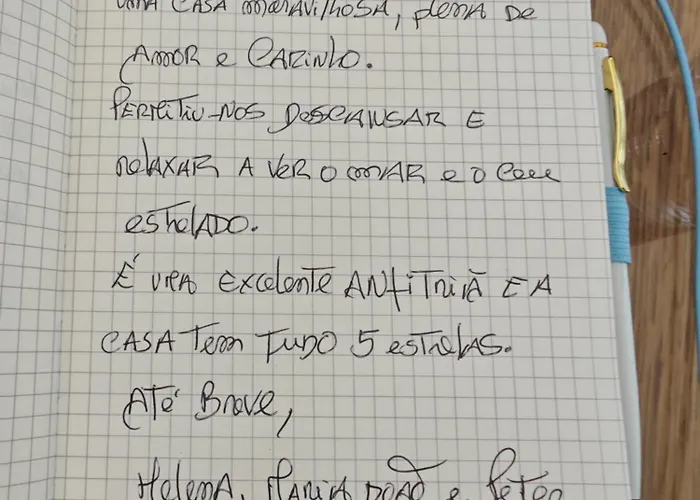 uma CASA maravilhosA, plena de
Amor e Carinho.
Permitiu-nos Descansar e
relaxar a ver o mar e o céu
estrelado.
É uma excelente anfitriã e a
casa tem tudo 5 estrelas.
Até Breve,
Helena, Maria João e Peter